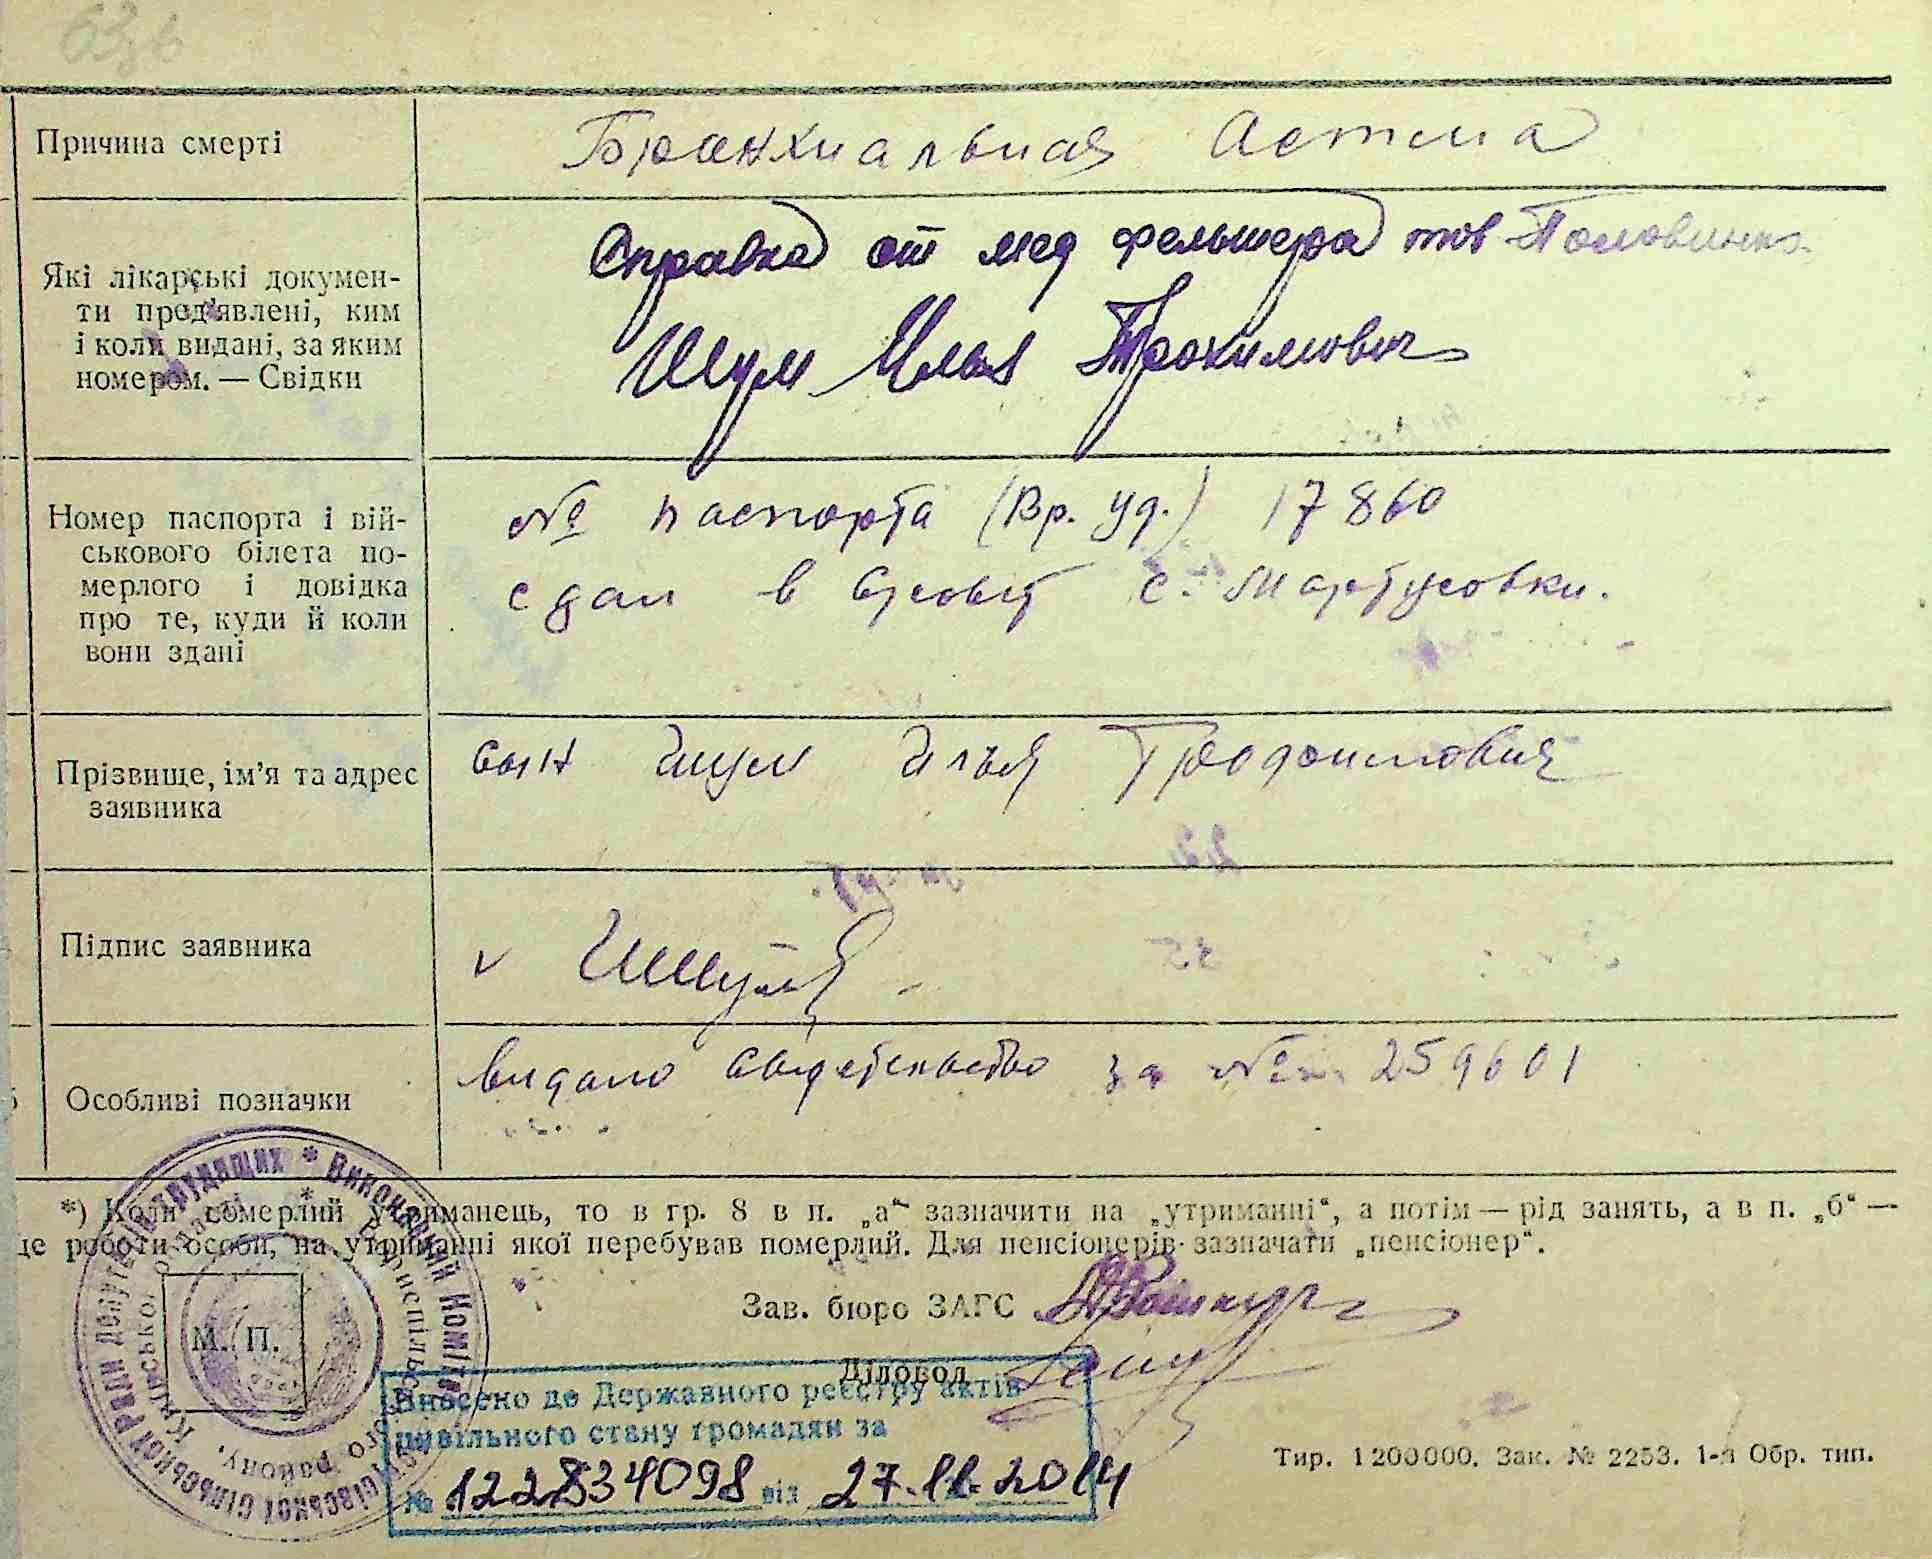 Причина смерті
Бранхиальная Астма
Які лікарські докумен-
ти пред'явлені, ким
і коли видані, за яким
номером. — Свідки
Справка от мед фельшера тов Половинко
Шум Илья Трохимович
Номер паспорта і вій-
ськового білета по-
мерлого і довідка
про те, куди й коли
вони здані
№ паспорта (Вр. уд.) 17860
сдан в с. Мартусовки.
Прізвище, ім'я та адрес
заявника
сын Шум Илья
Підпис заявника
v
Особливі позначки
видано за № 259601
*) Коли померлий утриманець, то в гр. 8 в п. „а“ зазначити на „утриманні“, а потім — рід занять, а в п. „б“ —
це роботи особи, на утриманні якої перебував померлий. Для пенсіонерів зазначати „пенсіонер“.
Зав. бюро ЗАГС
М. П.
Виконавчий Комітет сільської Ради депутатів трудящих
Бориспільського району, Київської області
Діловод
Внесено до Державного реєстру актів
цивільного стану громадян за
№ 122834098 від 27.11.2014
Тир. 1200000. Зак. № 2253. 1-а Обр. тип.